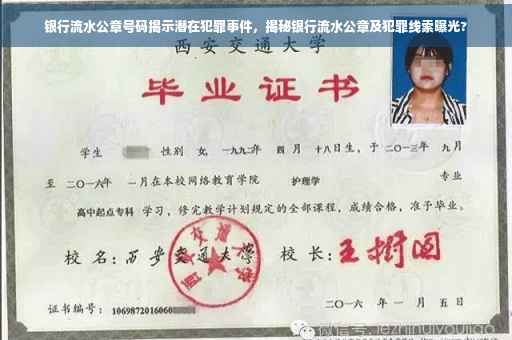 银行流水公章号码揭示潜在犯罪事件，揭秘银行流水公章及犯罪线索曝光？
西安交通大学
毕业证书
学生 性别 女，一九九二年 四月 十八日生，于二〇一三年 九月
至 二〇一六年 一月在本校网络教育学院 护理学 专业
高中起点专科 学习，修完教学计划规定的全部课程，成绩合格，准予毕业。
校 名：西安交通大学 校 长：王树国
西安交通大学
证书编号：1069872016060
二〇一六 年 一 月 五 日
微信号: jezhihuiyoujiao